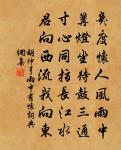 美度懷人風雨中
篝燈坐待鼓三通
寸心同指長江水
君向西流我向東
胡仲弓雨中書懷詞典
網集